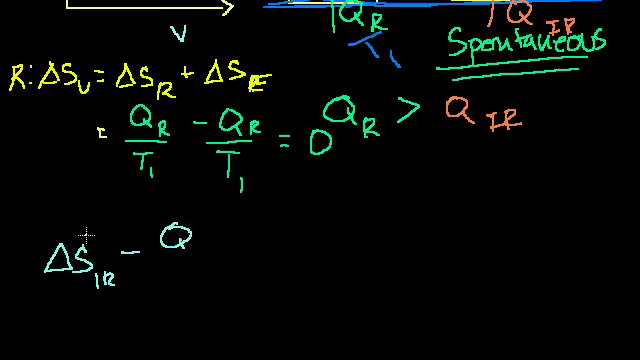 V
Q_R
T_1
Q_IR
Spontaneous
R: ΔS_U = ΔS_R + ΔS_E
= Q_R/T_1 - Q_R/T_1 = 0
Q_R > Q_IR
ΔS_IR - Q